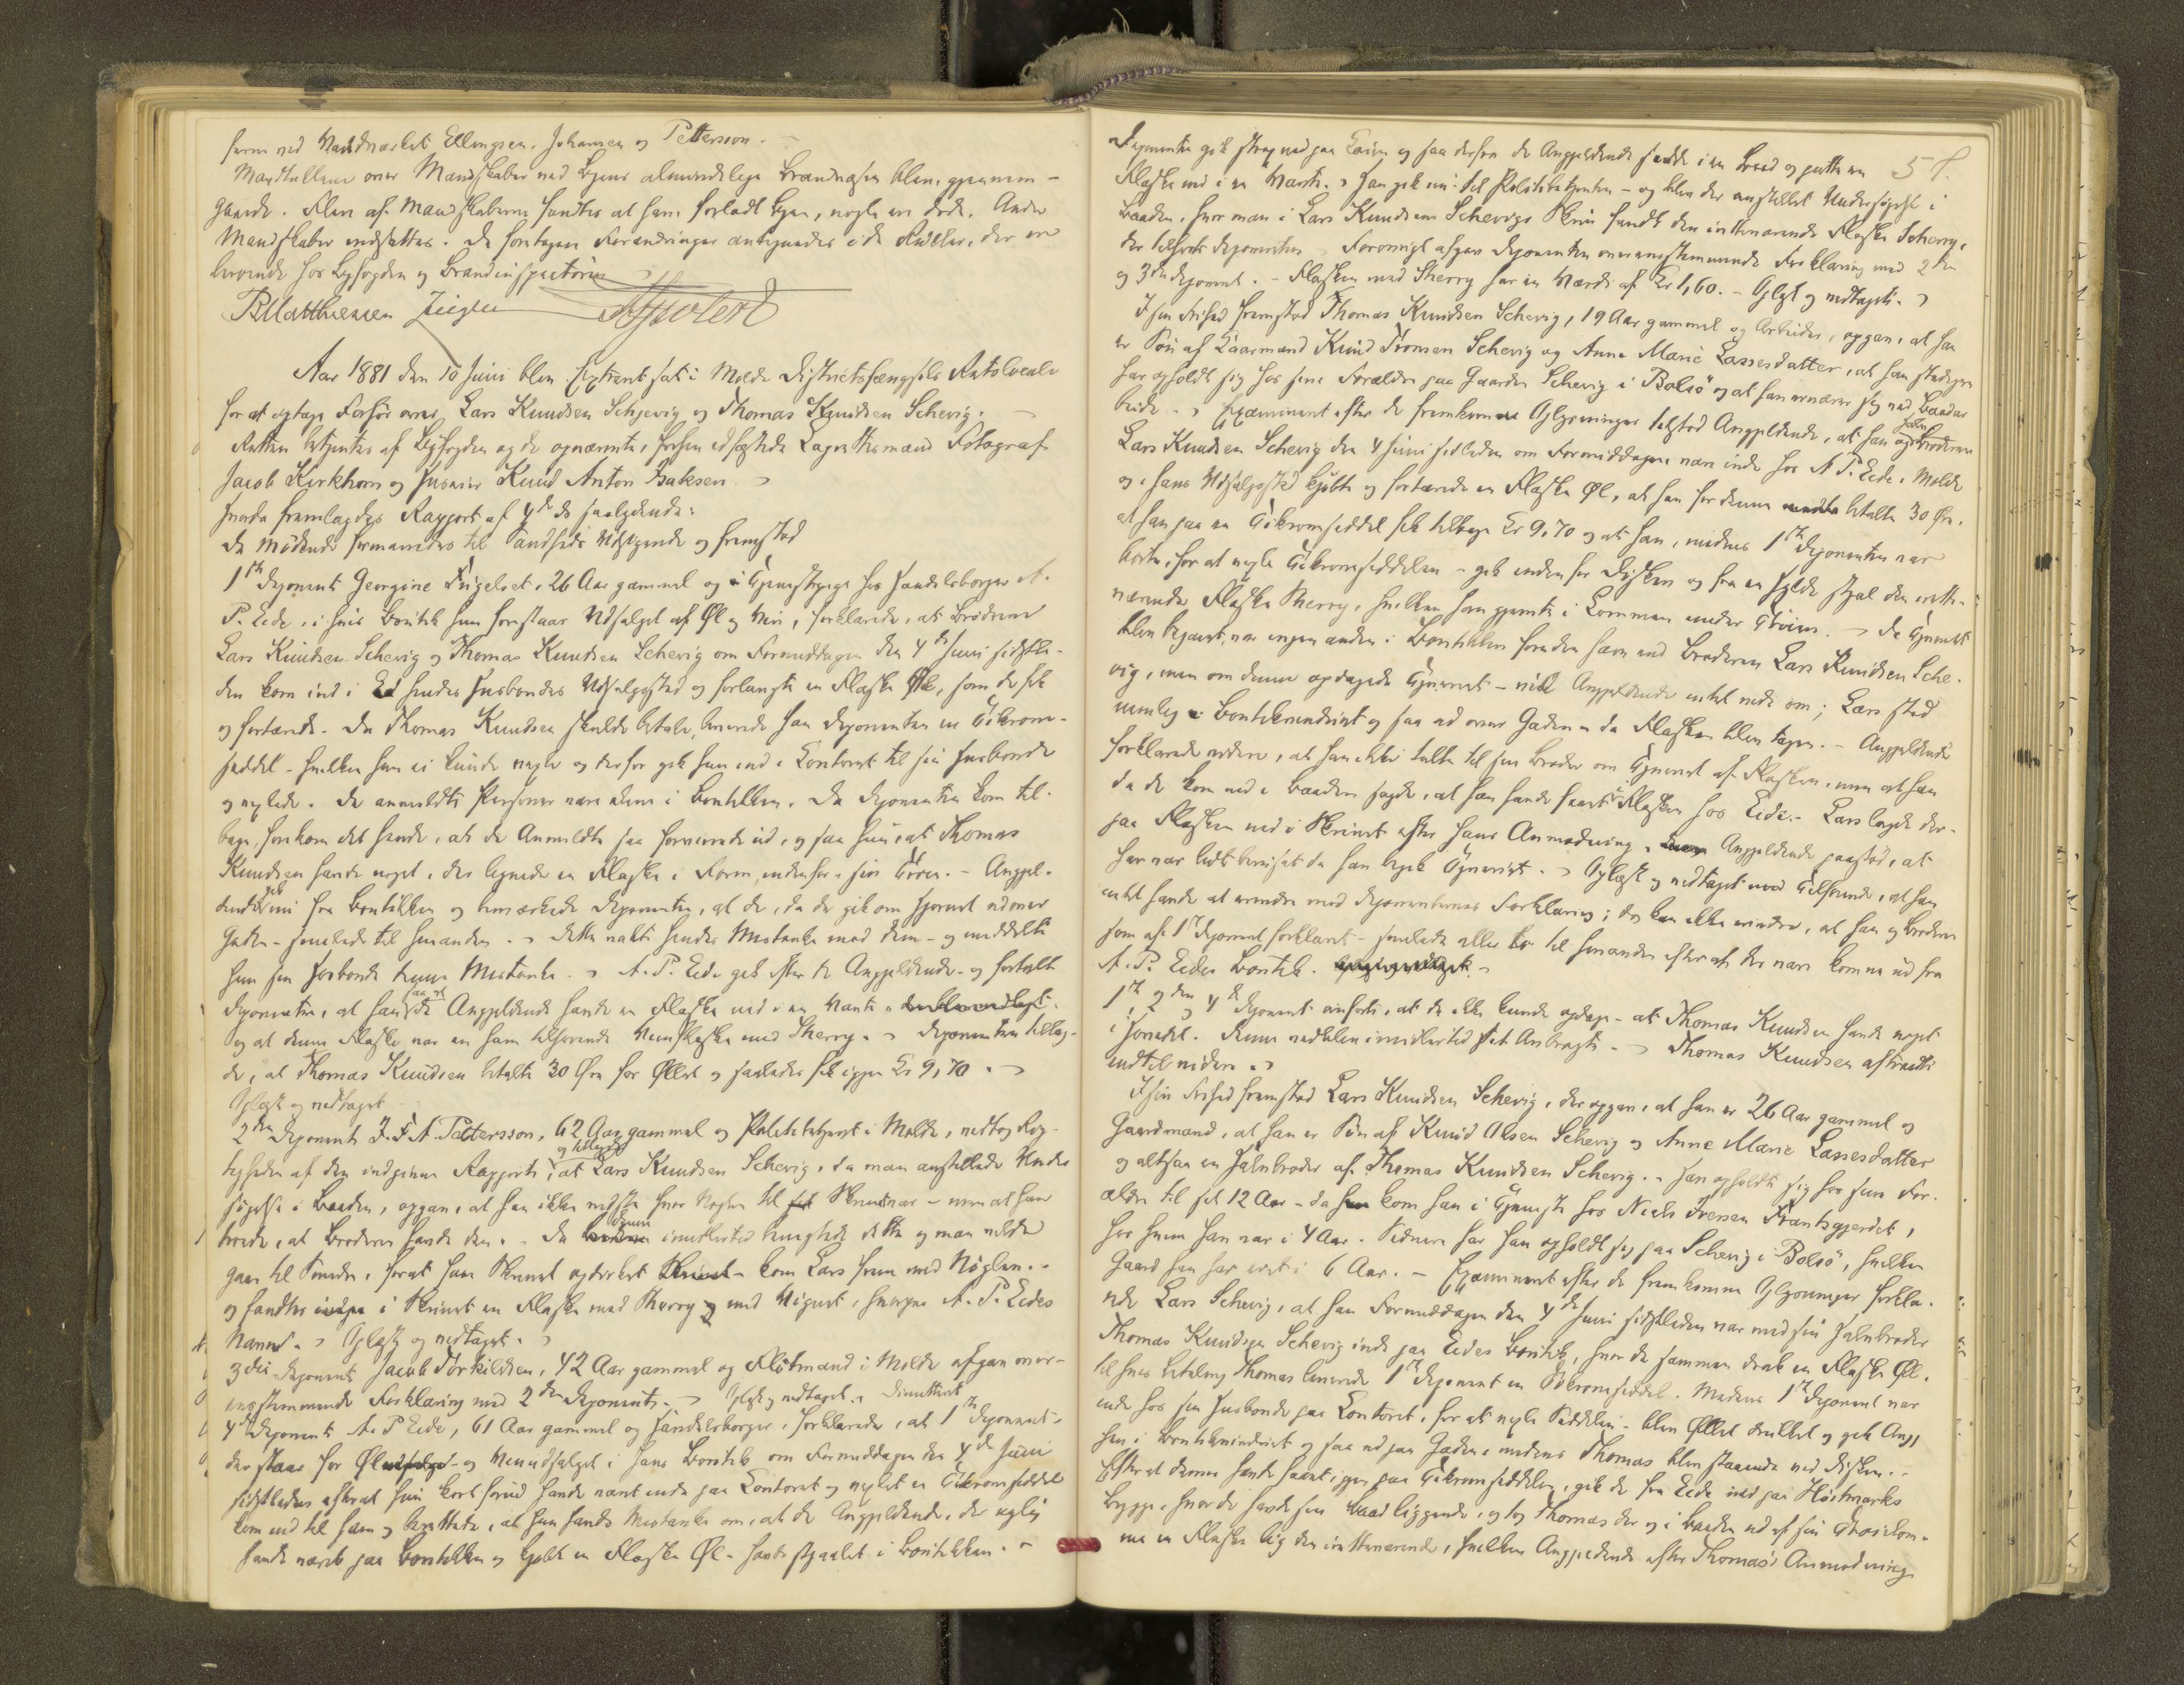 ferm ved Haandværket Ellingsen, Johansen og Pettersson. -
Mandtallene over Mandskaber ved Byens almindelige Brandvæsen blev gjennem-
gaaede. Flere af Mandskaberne fandtes at have forladt Byen, nogle ere døde. Andre
Mandskaber indsattes. De foretagne Forandringer antegnedes i de Ruller, der ere
beroende hos Byfogden og Brandinspectøren
B Matthiessen Ziegler
Aar 1881 den 10 Juni blev Extraret sat i Molde Districtsfængsels Retslocale
for at optage Forhør over Lars Knudsen Schjevig og Thomas Knudsen Schevig. -
Retten betjentes af Byfogden og de opnævnte, forhen edfæstede Lagrettesmænd Fotograf
Jacob Kirkhorn og Huseier Knud Anton Isaksen.
Hvorda fremlagdes Rapport af 4de ds saalydende:
De Mødende formanedes til Sandheds Udsigende og fremstod
1ste Deponent Georgine Frigelset, 26 Aar gammel og i Tjenestepige hos Handelsborger A.
P. Eide, i hvis Boutik hun forestaar Udsalget af Øl og Vin, forklarede, at Brødrene
Lars Knudsen Schevig og Thomas Knudsen Schevig om Formiddagen den 4de Juni sidstle-
den kom ind i hendes Husbondes Udsalgssted og forlangte en Flaske Øl, som de fik
og fortærede. Da Thomas Knudsen skulde betale, leverede han Deponenten en Tikrone-
seddel - hvilken hun ei kunde vexle og derfor gik hun ind i Contoret til sin Husbonde
og vexlede. De anmeldte Personer vare alene i Boutikken. Da Deponenten kom til-
bage, forekom det hende, at de Anmeldte saa forvirrede ud, og saa hun, at Thomas
Knudsen havde noget, der lignede en Flaske i Form, indenfor sin Trøie. - Angjel-
dende gik nu fra Boutikken og bemærkede Deponenten, at de, da de gik om Hjørnet udover
Gaden - smilede til hinanden. - Dette vakte hendes Mistanke mod dem - og meddelte
hun sin Husbonde denne Mistanke. - A. P. Eide gik efter de Angjeldende - og fortalte
Deponenten, at han saa at de Angjeldende havde en Flaske ned i en Vante
og at denne Flaske var en ham tilhørende Vinflaske med Sherry. - Deponenten tillag-
de, at Thomas Knudsen betalte 30 Øre for Øllet og saaledes fik igjen Kr 9,70. -
Oplæst og vedtaget
2den Deponent J. F. A. Pettersson, 62 Aar gammel og Politibetjent i Molde, vedtog Rig-
tigheden af den indgivne Rapport, og tillagde at Lars Knudsen Schevig, da man anstillede Under-
søgelse i Baaden, opgav, at han ikke vidste hvor Nøglen til Skrinet var - men at han
troede, at Broderen havde den. - Da denne imidlertid benegtede dette og man vilde
gaa til Smeden, forat faae Skrinet opdirket - kom Lars frem med Nøglen. -
og fandtes i Skrinet en Flaske med Sherry og med Vignet, hvorpaa A. P. Eides
Navn. - Oplæst og vedtaget. -
3die Deponent Jacob Torkildsen, 42 Aar gammel og Fløtmand i Molde afgav over-
ensstemmende Forklaring med 2den Deponent. - Oplæst og vedtaget. Dimitteret
4de Deponent A. P Eide, 61 Aar gammel og Handelsborger, forklarede, at 1ste Deponent -
der staaer for Øl- og Vinudsalget i hans Boutik om Formiddagen den 4de Juni
sidstleden efterat hun kort forud havde været inde paa Contoret og vexlet en Tikroneseddel
kom ind til ham og berettede, at hun havde Mistanke om, at de Angjeldende, der nylig
havde været paa Boutikken og kjøbt en Flaske Øl - havde stjaalet i Boutikken. -
58.
Deponenten gik strax ned paa Kaien og saa derfra de Angjeldende sidde i en Baad og putte en
Flaske ned i en Vante. - Han gik nu til Politibetjenten - og blev der anstillet Undersøgelse i
Baaden, hvor man i Lars Knudsens Schevigs Skrin fandt den inttenærende Flaske Scherry,
der tilhørte Deponenten. Forøvrigt afgav Deponenten overensstemmende Forklaring med 2den
og 3die Deponent. - Flasken med Sherry har en Værdi af Kr 1,60. - Oplæst og vedtaget. -
I sin Frihed fremstod Thomas Knudsen Schevig, 19 Aar gammel og Arbeider, opgav, at han
er Søn af Gaardmand Knud Iversen Schevig og Anne Marie Lassesdatter, at han stadigen
har opholdt sig hos sine Forældre paa Gaarden Schevig i Bolsø og at han ernærer sig ved Baadar-
beide. - Examineret efter de fremkomne Oplysninger tilstod Angjeldende, at han og Halvbroderen
Lars Knudsen Schevig den 4 Juni sidstleden om Formiddagen vare inde hos A P. Eide i Molde
og i hans Udsalgssted kjøbte og fortærede en Flaske Øl, at han for denne betalte 30 Øre,
at han paa en Tikroneseddel fik tilbage Kr 9,70 og at han, medens 1ste Deponenten var
borte, for at vexle Tikronesedddelen - gik indenfor Disken og fra en Hylde stjal den inttenær-
værende Flaske Sherry, hvilken han gjemte i Lommen under Trøien. - Da Tyveriet
blev begaaet, var ingen anden i Boutikken foruden ham end Broderen Lars Knudsen Sche-
vig, men om denne opdagede Tyveriet - vidste Angjeldende intet vide om; Lars stod
nemlig i Boutikvinduet og saa ud over Gaden - da Flasken blev tagen. - Angjeldende
forklarede videre, at han ikke talte til sin Broder om Tyveriet af Flasken, men at han
da de kom ned i Baaden sagde, at han havde faaet Flasken hos Eide. - Lars lagde der-
paa Flasken ned i Skrinet efter hans Anmodning. Angjeldende paastod, at
han var lidt beruset da han begik Tyveriet. - Oplæst og vedtaget med Tilføiende, at han
intet havde at erindre mod Deponenternes Forklaring; dog kan ikke erindre, at han og Broderen
som af 1ste Deponent forklaret - smilede eller lo til hinanden efterat de vare komne ud fra
A. P. Eides Boutik. -
1ste og 4de Deponent anførte, at de ikke kunde opdage - at Thomas Knudsen havde noget
i Hovedet. Thomas Knudsen aftraadte
indtil videre. -
I sin Frihed fremstod Lars Knudsen Schevig, der opgav, at han er 26 Aar gammel og
Gaardmand, at han er Søn af Knud Olsen Schevig og Anne Marie Lassesdatter
og altsaa en Halvbroder af Thomas Knudsen Schevig. - Han opholdt sig hos sine For-
ældre til sit 12 Aar - da kom han i Tjeneste hos Niels Iversen Frantsgjerdet,
hos hvem han var i 4 Aar. Sidenere har han opholdt sig paa Schevig i Bolsø, hvilken
Gaard han har eiet i 6 Aar. - Examineret efter de fremkomne Oplysninger forkla-
rede Lars Schevig, at han Formiddagen den 4de Juni sidstleden var med sin Halvbroder
Thomas Knudsen Schevig inde paa Eides Boutik, hvor de sammen drak en Flaske Øl,
til hvis Betaling Thomas leverede 1ste Deponent en Tikroneseddel. Medens 1ste Deponent var
inde hos sin Husbonde paa Contoret, for at vexle Seddelen - blev Øllet drukket og gik Angj
hen i Boutikvinduet og saa ud paa Gaden, medens Thomas blev staaende ved Disken. -
Efterat denne havde faaet igjen paa Tikroneseddelen, gik de fra Eide ned paa Høstmarks
Brygge, hvor de havde sin Baad liggende, og tog Thomas der og i Baaden ud af sin Trøielom-
me en Flaske lig den inttenærende, hvilken Angjeldende efter Thomas's Anmodning